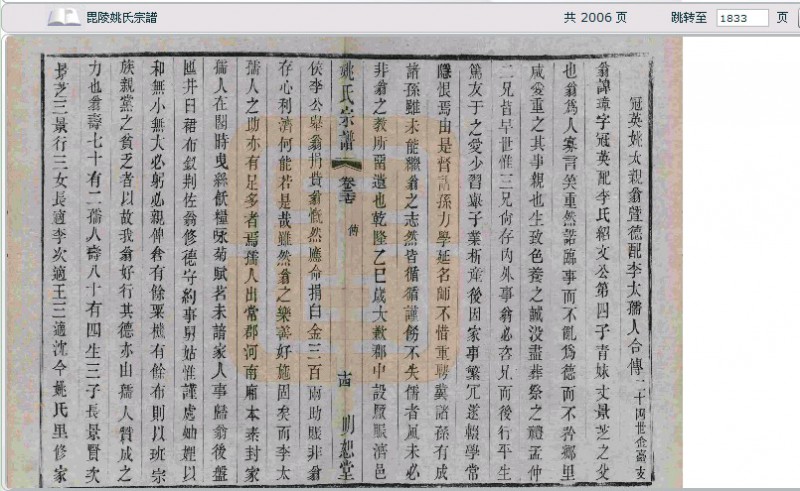 毘陵姚氏宗譜
共 2006 页
跳转至 1833 页
冠英姚太親翁暨德配李太孺人合傳 二十四世企喬支
翁諱璋字冠英配李氏紹文公第四子青妹丈景芝之父
也翁爲人寡言笑重然諾臨事而不亂爲德而不矜鄉里
咸愛重之其事親也生致色養之誠沒盡葬祭之禮孟仲
二兄皆早世惟三兄尙存內外事翁必咨兄而後行平生
篤友于之愛少習舉子業析產後因家事繁冗遂輟學常
隱恨焉由是督諸孫力學延名師不惜重聘冀諸孫有成
諸孫雖未能繼翁之志然皆循循謹飭不失儒者風未必
非翁之教所留遺也乾隆乙巳歲大歉郡中設厰賑濟邑
姚氏宗譜 卷 傳 十四 明恕堂
侯李公舉翁捐貲翁慨然應命捐白金三百兩助賑非翁
存心利濟何能若是哉雖然翁之樂善好施固矣而李太
孺人之助亦有足多者焉孺人出常郡河南廂本素封家
孺人在閨時曳綠飫糧咏菊賦茗未諳家人事歸翁後盤
匜井臼裙布釵荆佐翁修德守約事舅姑惟謹處妯娌以
和無小無大必躬必親俾倉有餘粟機有餘布則以班宗
族親黨之貧乏者以故我翁好行其德亦由孺人贊成之
力也翁壽七十有二孺人壽八十有四生三子長景賢次
景芝三景行三女長適李次適王三適沈今姚氏里修家